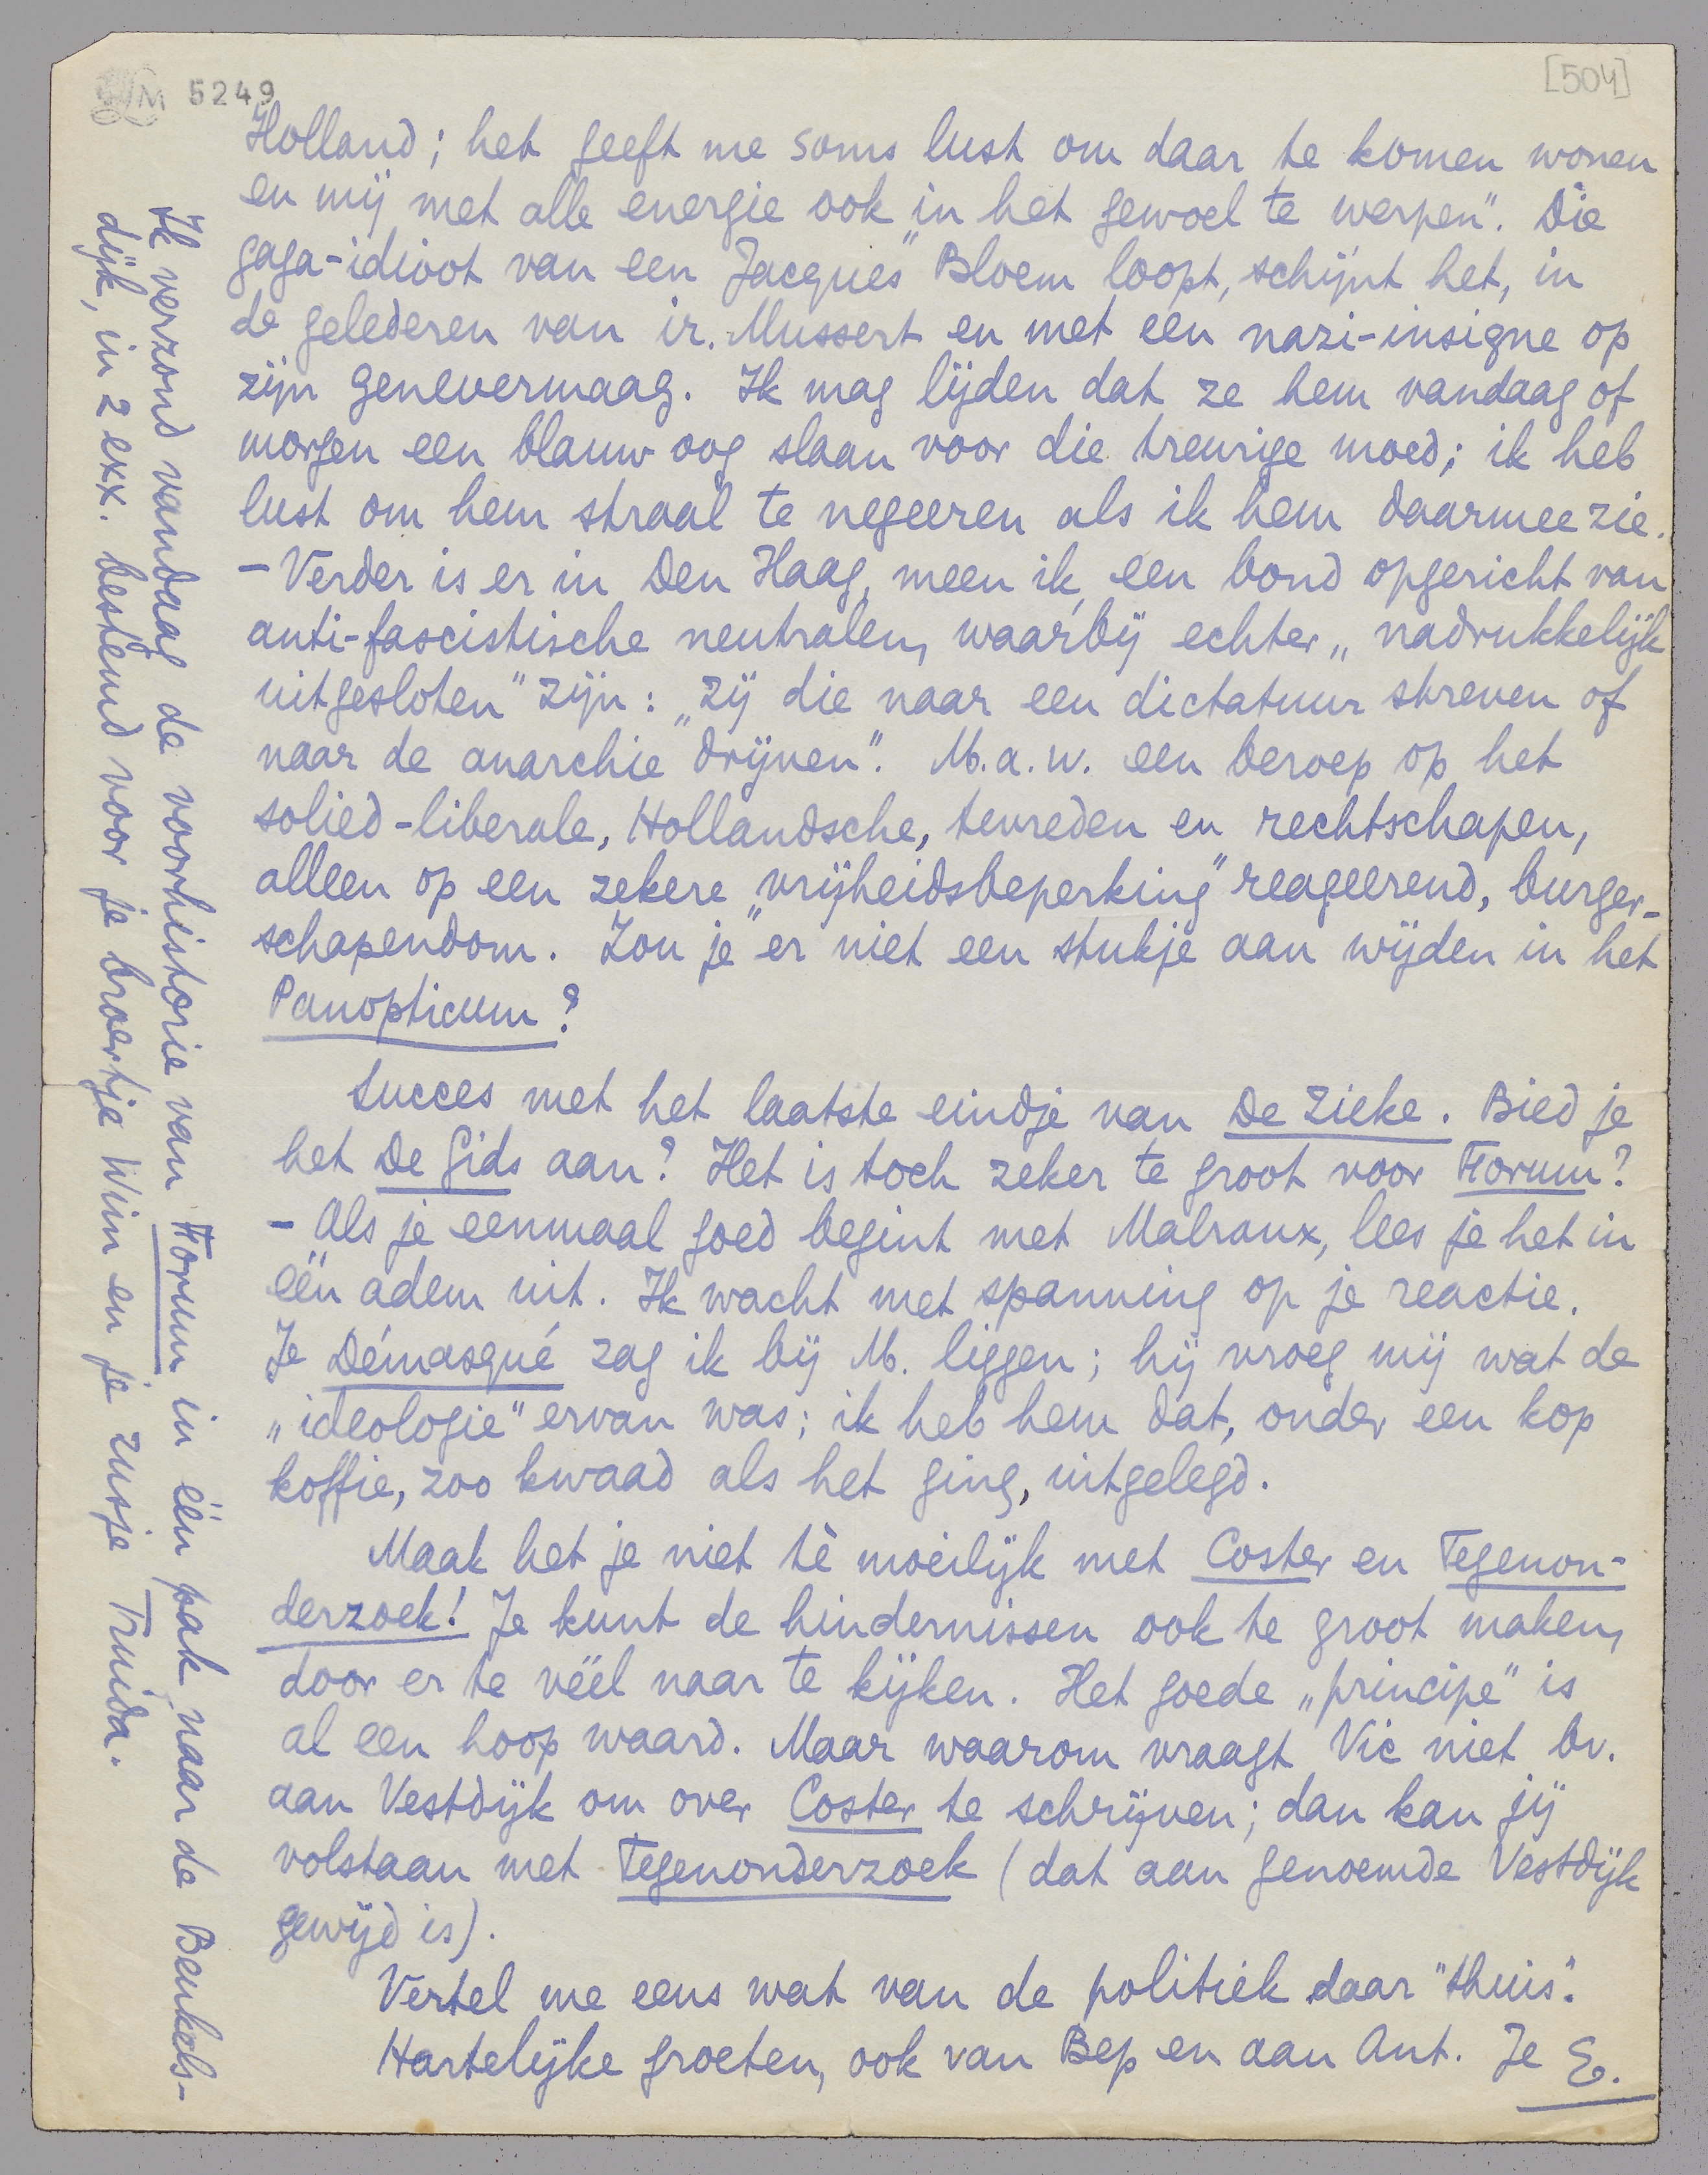 LM 5249
[504]
Holland; het geeft me soms lust om daar te komen wonen
en mij met alle energie ook „in het gewoel te werpen”. Die
gaga-idioot van een Jacques Bloem loopt, schijnt het, in
de gelederen van ir. Mussert en met een nazi-insigne op
zijn genevermaag. Ik mag lijden dat ze hem vandaag of
morgen een blauw oog slaan voor die treurige moed; ik heb
lust om hem straal te negeeren als ik hem daarmee zie.
– Verder is er in Den Haag, meen ik, een bond opgericht van
anti-fascistische neutralen, waarbij echter „nadrukkelijk
uitgesloten” zijn: „zij die naar een dictatuur streven of
naar de anarchie drijven”. M.a.w. een beroep op het
solied-liberale, Hollandsche, tevreden en rechtschapen,
alleen op een zekere „vrijheidsbeperking” reageerend, burger-
schapendom. Zou je er niet een stukje aan wijden in het
Panopticum?
Succes met het laatste eindje van De Zieke. Bied je
het De Gids aan? Het is toch zeker te groot voor Forum?
– Als je eenmaal goed begint met Malraux, lees je het in
één adem uit. Ik wacht met spanning op je reactie.
Je Démasqué zag ik bij M. liggen; hij vroeg mij wat de
„ideologie” ervan was; ik heb hem dat, onder een kop
koffie, zoo kwaad als het ging, uitgelegd.
Maak het je niet tè moeilijk met Coster en Tegenon-
derzoek! Je kunt de hindernissen ook te groot maken,
door er te véél naar te kijken. Het goede „principe” is
al een hoop waard. Maar waarom vraagt Vic niet bv.
aan Vestdijk om over Coster te schrijven; dan kan jij
volstaan met Tegenonderzoek (dat aan genoemde Vestdijk
gewijd is).
Vertel me eens wat van de politiek daar "thuis".
Hartelijke groeten, ook van Bep en aan Ant. Je E.
Ik verzond vandaag de voorhistorie van Forum in één pak naar de Benkels-
dijk, in 2 exx. bestemd voor je broertje Wim en je zusje Truida.